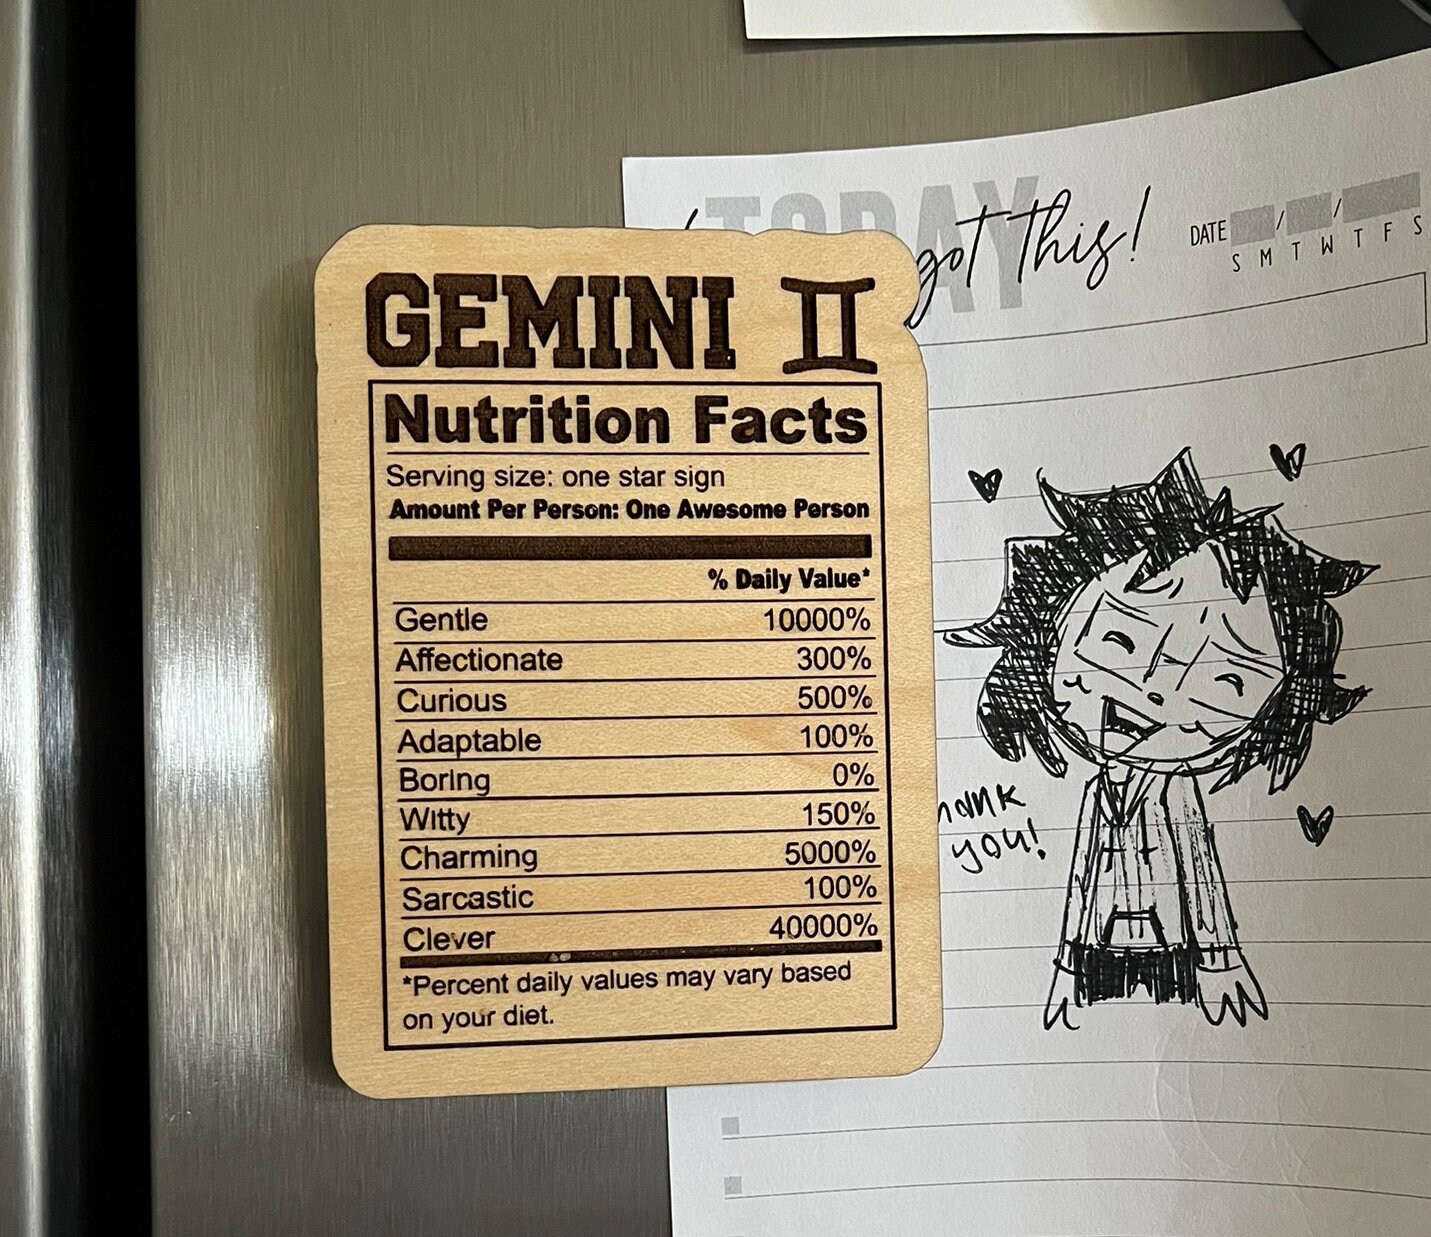 GEMINI ♊
Nutrition Facts
Serving size: one star sign
Amount Per Person: One Awesome Person
% Daily Value*
Gentle 10000%
Affectionate 300%
Curious 500%
Adaptable 100%
Boring 0%
Witty 150%
Charming 5000%
Sarcastic 100%
Clever 40000%
*Percent daily values may vary based
on your diet.
TODAY
got this!
DATE / /
S M T W T F S
you!